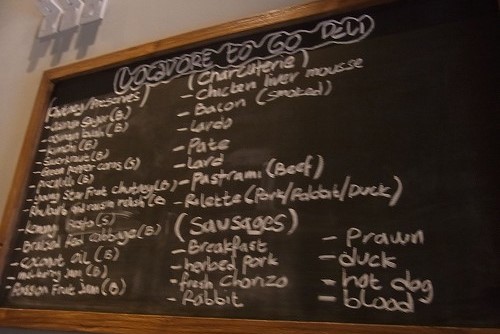 LOCAVORE TO GO DELI
(Chutney/Preserves)
- Kimchi (B)
- Sauerkraut (B)
- Green Pepper corns (S)
- Piccalilli (B)
- young Star Fruit chutney (B)
- Rhubarb and raisin relish (B)
- Pesto (S)
- Braised Red cabbage (B)
- coconut oil (B)
- mulberry Jam (B)
- Passion Fruit Jam (B)
(Charcuterie)
- Chicken liver mousse
- Bacon (smoked)
- Lardo
- Pate
- Lard
- Pastrami (Beef)
- Rilette (Pork/Rabbit/Duck)
(Sausages)
- Breakfast
- herbed pork
- fresh Chorizo
- Rabbit
- Prawn
- duck
- hot dog
- blood